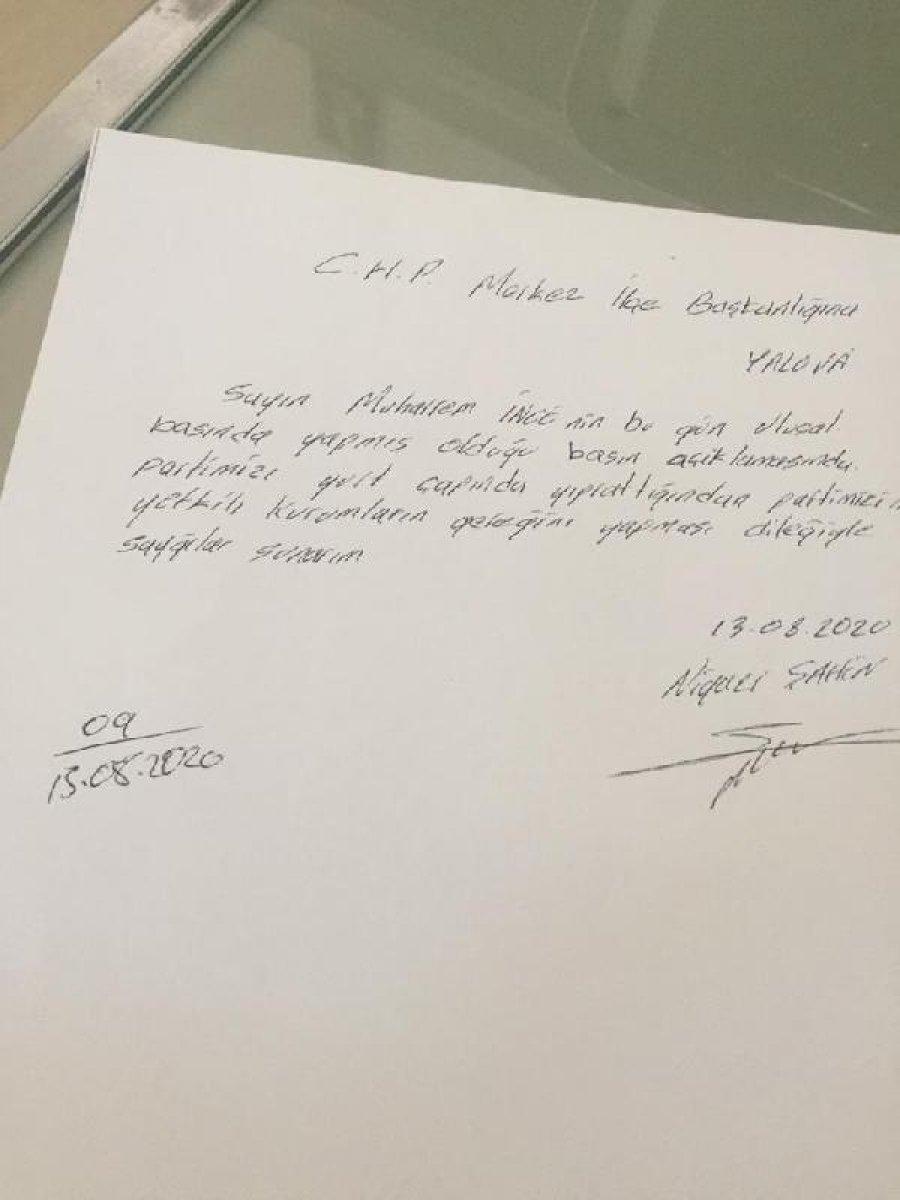 C.H.P. Merkez İlçe Başkanlığına
YALOVA
Sayın Muharrem İNCE'nin bu gün ulusal
basında yapmış olduğu basın açıklamasında
partimizi yurt çapında yıprattığından partimizin
yetkili kurumların gereğini yapması dileğiyle
saygılar sunarım
13.08.2020
ŞAHİN
09
13.08.2020